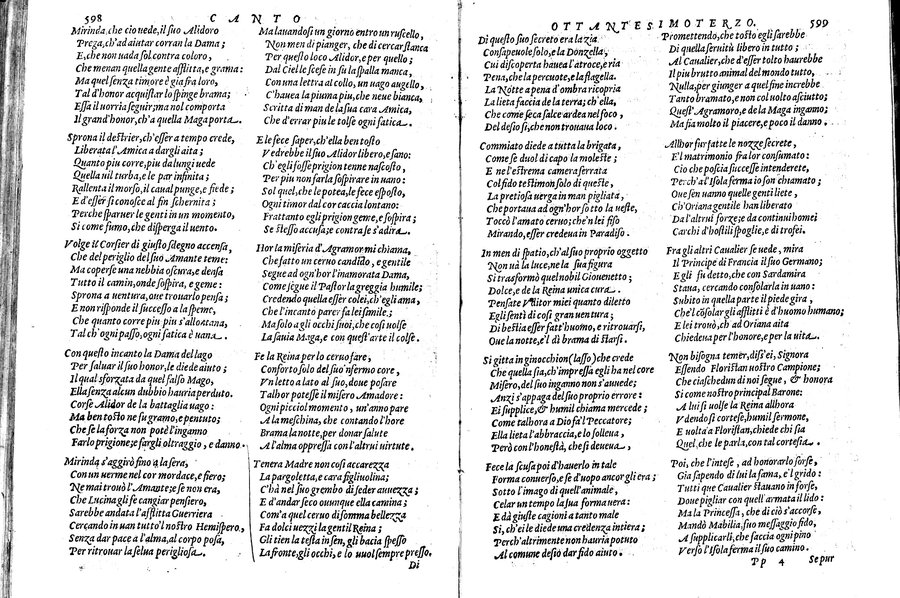 598 CANTO
Mirinda, che ciò uede, il suo Alidoro
Prega, ch'ad aiutar corran la Dama;
E, che non uada sol contra coloro,
Che menan quella gente afflitta, e grama:
Ma quel senza timore è gia fra loro,
Tal d'honor acquistar lo spinge brama;
Essa il uorria seguir; ma nol comporta
Il grand'honor, ch'a quella Maga porta.
Sprona il destrier, ch'esser a tempo crede,
Liberata l'Amica a dargli aita;
Quanto piu corre, piu da lungi uede
Quella uil turba, e le par infinita;
Rallenta il morso, il caual punge, e fiede;
E d'esser si conosce al fin schernita;
Perche sparuer le genti in un momento,
Si come fumo, che disperga il uento.
Volge il Corsier di giusto sdegno accensa,
Che del periglio del suo Amante teme:
Ma coperse una nebbia oscura, e densa
Tutto il camin, onde sospira, e geme:
Sprona a uentura, oue trouarlo pensa;
E non risponde il successo a la speme,
Che quanto corre piu piu s'allontana,
Tal ch'ogni passo, ogni fatica è uana.
Con questo incanto la Dama del lago
Per saluar il suo honor, le diede aiuto;
Il qual sforzata da quel falso Mago,
Ella senza alcun dubbio hauria perduto.
Corse Alidor de la battaglia uago:
Ma ben tosto ne fu gramo, e pentuto;
Che se la forza non potè l'inganno
Farlo prigione; e fargli oltraggio, e danno.
Mirinda s'aggirò fino a la sera,
Con un uerme nel cor mordace, e fiero;
Ne mai trouò l'Amante; e se non era,
Che Lucina gli fe cangiar pensiero,
Sarebbe andata l'afflitta Guerriera
Cercando in uan tutto'l nostro Hemispero,
Senza dar pace a l'alma, al corpo posa,
Per ritrouar la selua perigliosa.
Ma lauandosi un giorno entro un ruscello,
Non men di pianger, che di cercar stanca
Per questo loco Alidor, e per quello;
Dal Ciel le scese in su la spalla manca,
Con una lettra al collo, un uago augello,
C'hauea la piuma piu, che neue bianca,
Scritta di man de la sua cara Amica,
Che d'errar piu le tolse ogni fatica.
E le fece saper, ch'ella ben tosto
Vedrebbe il suo Alidor libero, e sano:
Ch'egli fosse prigion tenne nascosto,
Per piu non farla sospirar in uano:
Sol quel, che le potea, le fece esposto,
Ogni timor dal cor caccia lontano:
Frattanto egli prigion geme, e sospira;
Se stesso accusa; e contra se s'adira.
Hor la miseria d'Agramor mi chiama,
Che fatto un ceruo candido, e gentile
Segue ad ogn'hor l'inamorata Dama,
Come segue il Pastor la greggia humile;
Credendo quella esser colei, ch'egli ama,
Che l'incanto parer fa lei simile;
Ma solo a gli occhi suoi, che così uolse
La sauia Maga, e con quest'arte il colse.
Fe la Reina per lo ceruo fare,
Conforto sol del suo infermo core,
Vn letto a lato al suo, doue posare
Talhor potesse il misero Amadore:
Ogni picciol momento, un'anno pare
A la meschina, che contando l'hore
Brama la notte, per donar salute
A l'alma oppressa con l'altrui uirtute.
Tenera Madre non così accarezza
La pargoletta, e cara figliuolina;
C'hà nel suo grembo di seder auuezza;
E d'andar seco ouunque ella camina;
Com'a quel ceruo di somma bellezza
Fa dolci uezzi la gentil Reina;
Gli tien la testa in sen, gli bacia spesso
La fronte, gli occhi, e lo uuol sempre presso.
Di
OTTANTESIMOTERZO. 599
Di questo suo secreto era la zia
Consapeuole solo, e la Donzella,
Cui discoperta hauea l'atroce, e ria
Pena, che la percuote, e la flagella.
La Notte a pena d'ombra ricopria
La lieta faccia de la terra; ch'ella,
Che come seca falce ardea nel foco,
Del desio si, che non trouaua loco.
Commiato diede a tutta la brigata,
Come se duol di capo la moleste;
E ne l'estrema camera serrata
Col fido testimon sol di queste,
La pretiosa uerga in man pigliata,
Che portaua ad ogn'hor sotto la ueste,
Toccò l'amato ceruo; che'n lei fiso
Mirando, esser credeua in Paradiso.
In men di spatio, ch'al suo proprio oggetto
Non uà la luce, ne la sua figura
Si trasformò quel nobil Giouenetto;
Dolce, e de la Reina unica cura.
Pensate Vditor miei quanto diletto
Egli sentì di così gran uentura;
Di bestia esser fatt'huomo, e ritrouarsi,
Oue la notte, e'l dì brama di starsi.
Si gitta in ginocchion (lasso) che crede
Che quella sia, ch'impressa egli ha nel core
Misero, del suo inganno non s'auuede;
Anzi s'appaga del suo proprio errore:
Ei supplice, & humil chiama mercede;
Come talhora a Dio fa'l Peccatore;
Ella lieta l'abbraccia, e lo solleua,
Però con l'honestà, ch'esser deueua.
Fece la scusa poi d'hauerlo in tale
Forma conuerso, e se d'uopo ancor gli era;
Sotto l'imago di quell'animale,
Celar un tempo la sua forma uera:
E dà giuste cagioni a tanto male
Si, ch'ei le diede una credenza intiera;
Perch'altrimente non hauria potuto
Al comune desio dar fido aiuto.
Promettendo, che tosto egli sarebbe
Di quella seruitù libero in tutto;
Al Caualier, che d'esser tolto haurebbe
Il piu brutto animal del mondo tutto,
Nulla, per giunger a quel fine increbbe
Tanto bramato, e non col uolto asciutto;
Quest'Agramoro, e de la Maga inganno;
Ma fia molto il piacere, e poco il danno.
Allhor fur fatte le nozze secrete,
E'l matrimonio fra lor consumato:
Cio che poscia successe intenderete,
Perch'a l'Isola ferma io son chiamato;
Oue sen uanno quelle genti liete,
Ch'Oriana gentile han liberato
Da l'altrui forze; e da continui homei
Carchi d'hostili spoglie, e di trofei.
Fra gli altri Caualier se uede, mira
Il Principe di Francia il suo Germano;
Egli fu detto, che con Sardamira
Staua, cercando consolarla in uano:
Subito in quella parte il piede gira,
Che'l cōsolar gli afflitti è d'huomo humano;
E lei trouò, ch'ad Oriana aita
Chiedeua per l'honore, e per la uita.
Non bisogna temer, diss'ei, Signora
Essendo Florestan uostro Campione;
Che ciaschedun di noi segue, & honora
Si come nostro principal Barone:
A lui si uolse la Reina allhora
Vdendo sì cortese, humil sermone,
E uolta a Floristan, chiede chi sia
Quel, che le parla, con tal cortesia.
Poi, che l'intese, ad honorarlo forse,
Gia sapendo di lui la fama, e'l grido:
Tutti que Caualier stauano in forse,
Doue pigliar con quell'armata il lido:
Ma la Princessa, che di ciò s'accorse,
Mandò Mabilia, suo messaggio fido,
A supplicarli, che faccia ogni pino
Verso l'Isola ferma il suo camino.
Pp 4 Se pur